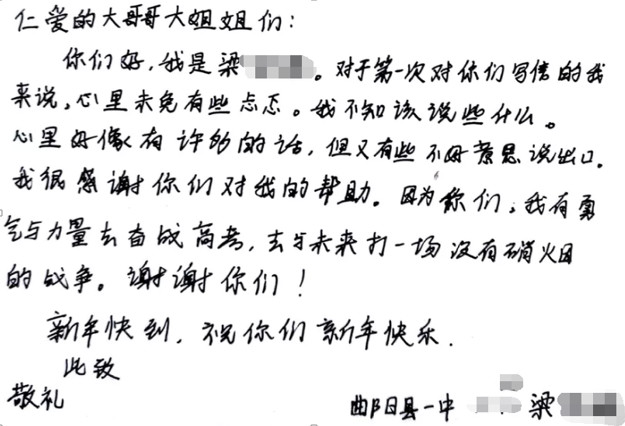 仁爱的大哥哥大姐姐们：
你们好，我是梁。对于第一次对你们写信的我
来说，心里未免有些忐忑。我不知该说些什么。
心里好像有许多的话，但又有些不好意思说出口。
我很感谢你们对我的帮助。因为你们，我有勇
气与力量去奋战高考，去与未来打一场没有硝火因
的战争。谢谢你们！
新年快到，祝你们新年快乐．
此致
敬礼
曲阳县一中 梁